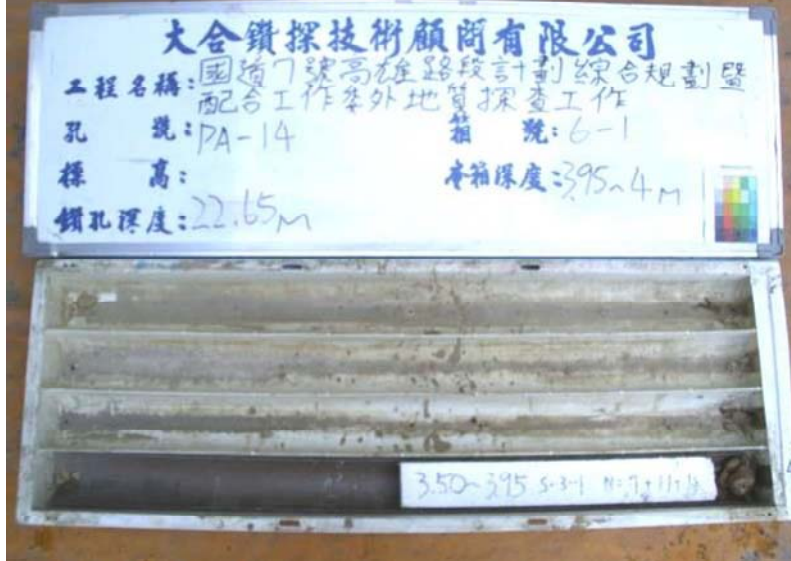 大合鑽探技術顧問有限公司
工程名稱:國道7號高雄路段計劃綜合規劃暨
配合工作委外地質探查工作
孔號:PA-14 箱號:6-1
標高: 本箱深度:3.95~4M
鑽孔深度:22.65M
3.50~3.95 S-3-1 N=7+11+